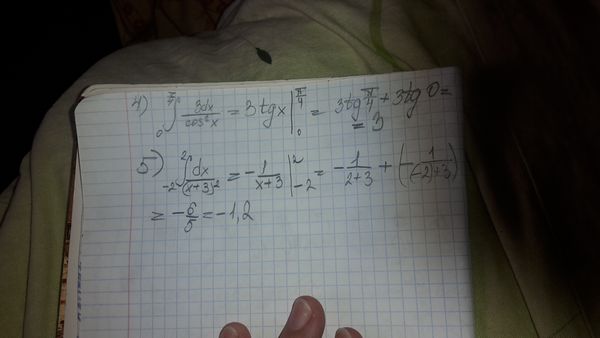 4) ∫₀^{π/4} 3dx/cos²x = 3tgx |₀^{π/4} = 3tg π/4 + 3tg 0 =
= 3
5) ∫₋₂² dx/(x+3)² = - 1/(x+3) |₋₂² = - 1/(2+3) + (- 1/((-2)+3))
= - 6/5 = -1,2